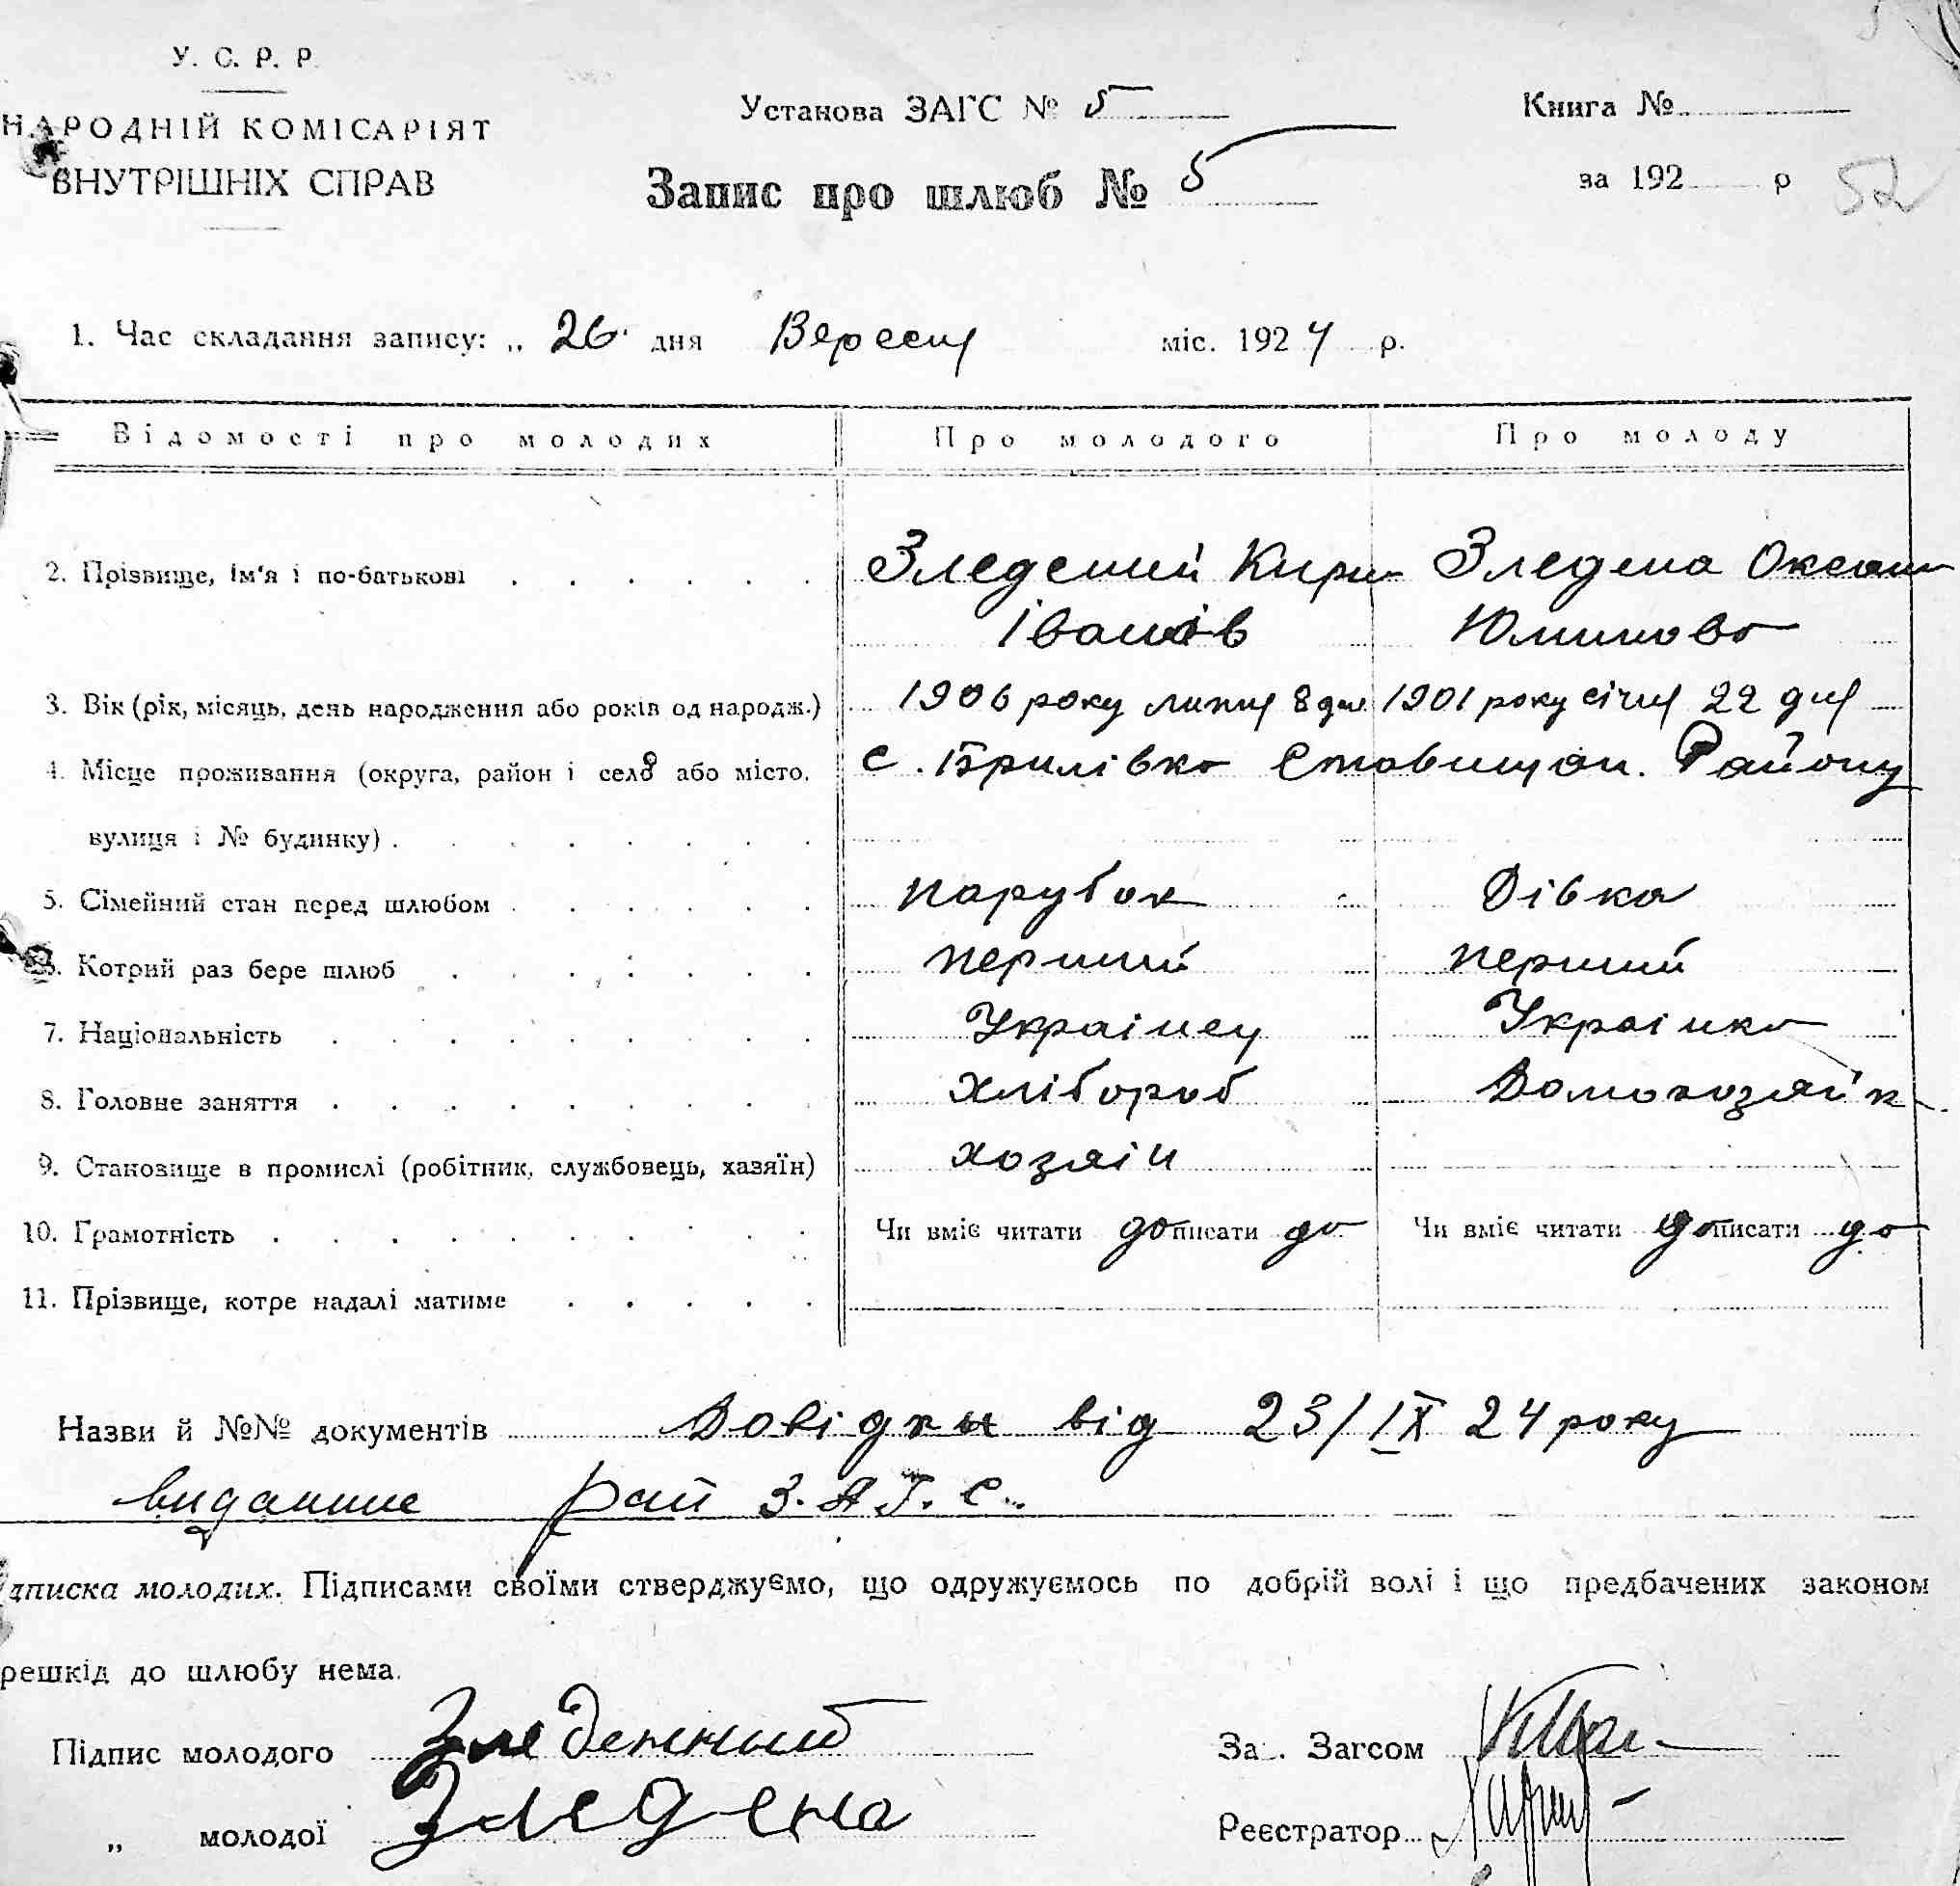 У. С. Р. Р.
НАРОДНІЙ КОМІСАРІЯТ
ВНУТРІШНІХ СПРАВ
Установа ЗАГС № 5
Запис про шлюб № 5
Книга №
за 192 р
52
1. Час складання запису: „ 26 дня Вересня міс. 1924 р.
Відомості про молодих Про молодого Про молоду
2. Прізвище, ім'я і по-батькові Зледений Кири Зледена Оксана
Іванів
3. Вік (рік, місяць, день народження або років од народж.) 1906 року липня 8 дня 1901 року січня 22 дня
4. Місце проживання (округа, район і село або місто, с. Брилівка Ставищан. Району
вулиця і № будинку)
5. Сімейний стан перед шлюбом парубок Дівка
6. Котрий раз бере шлюб перший перший
7. Національність Українец Українка
8. Головне заняття хлібороб Домохозяйк
9. Становище в промислі (робітник, службовець, хазяїн) хозяін
10. Грамотність Чи вміє читати да писати да Чи вміє читати да писати да
11. Прізвище, котре надалі матиме
Назви й №№ документів Довідки від 23/IX 24 року
виданние рай З.А.Г.С.
дписка молодих. Підписами своїми стверджуємо, що одружуємось по добрій волі і що предбачених законом
решкід до шлюбу нема.
Підпис молодого Зледенний За Загсом
„ молодої Зледена Реєстратор